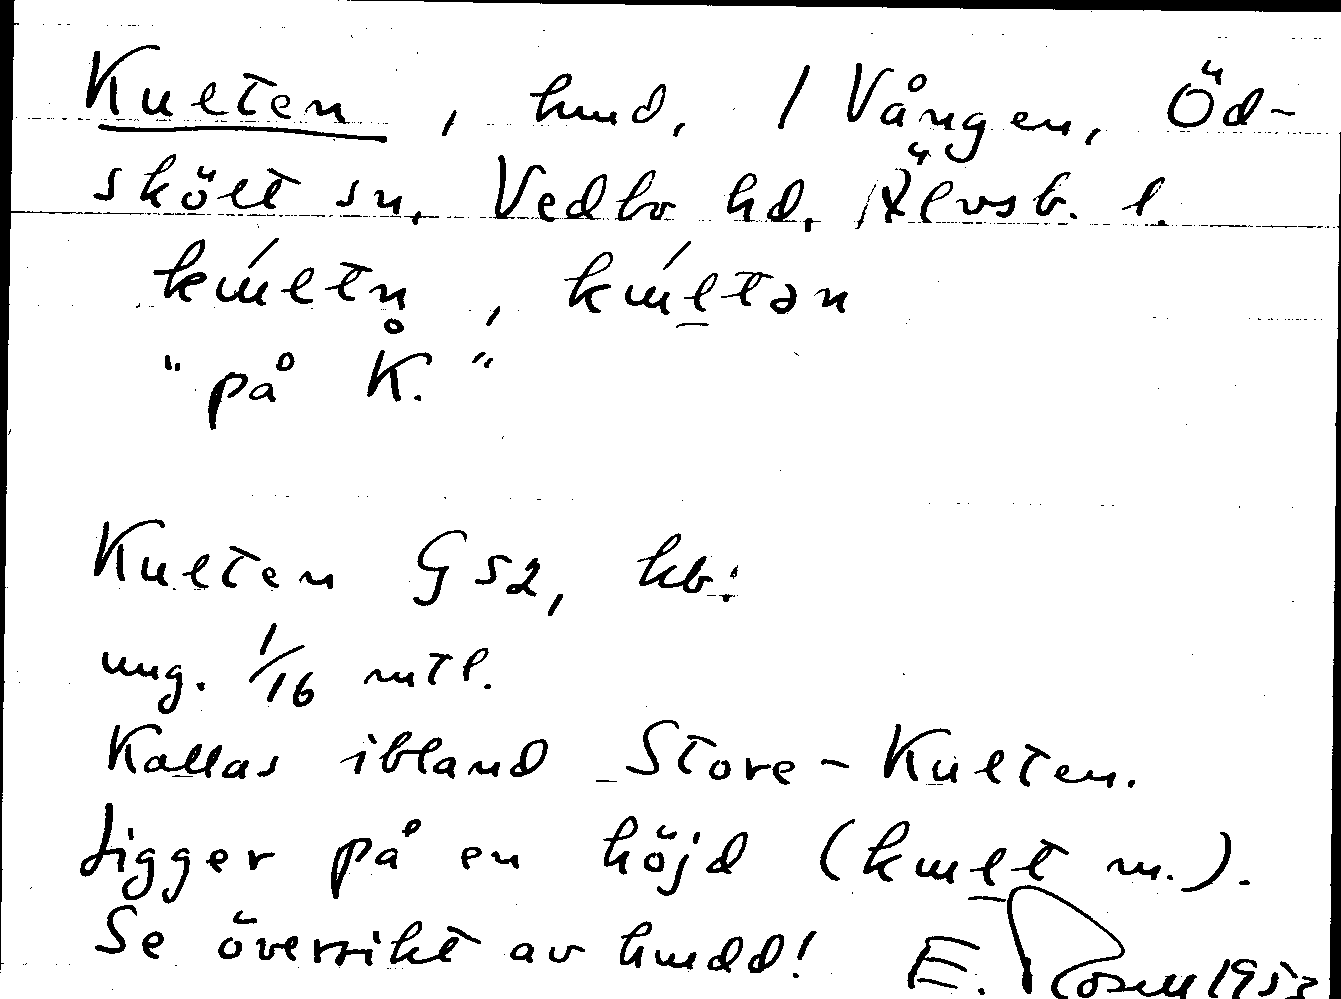 Kulten, hmd, 1 Vången, Öd-
skölt sn, Vedbo hd, Älvsb. l.
"på K."
Kulten GS2, hb:
ung. 1/16 mtl.
Kallas ibland Store-Kulten.
Ligger på en höjd (kɯlt m.).
Se översikt av hmdd! E. Rosell 1953